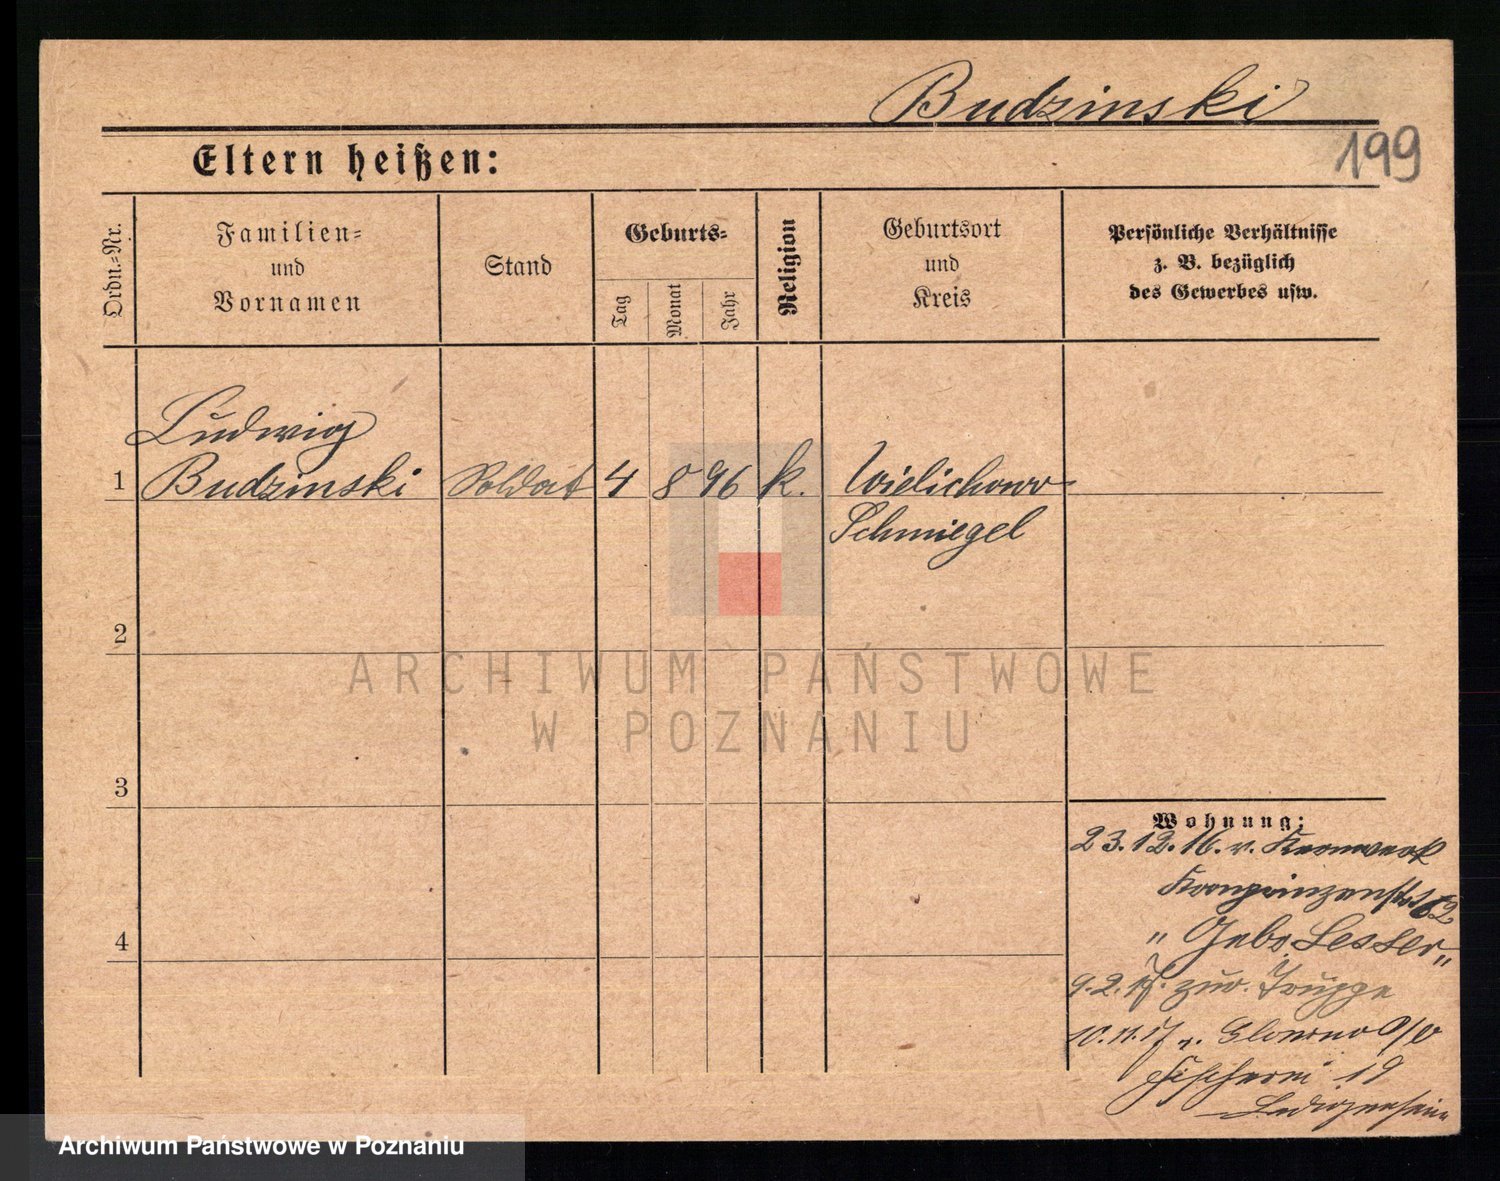 Budzinski
199
Eltern heißen:
Ordn.-Nr.
Familien-
und
Vornamen
Stand
Geburts-
Tag
Monat
Jahr
Religion
Geburtsort
und
Kreis
Persönliche Verhältnisse
z. B. bezüglich
des Gewerbes usw.
Ludwig
1 Budzinski Soldat 4 8 96 k. Wielichowo
Schmiegel
2
3
4
Wohnung:
23.12.16. v. Kernwerk
Kronprinzenstr.
" Gebr. Lesser "
9.2.17. zur. Truppe
10.11.17 v. Glowno P/O
Fischerei 19
ARCHIWUM PAŃSTWOWE
W POZNANIU
Archiwum Państwowe w Poznaniu